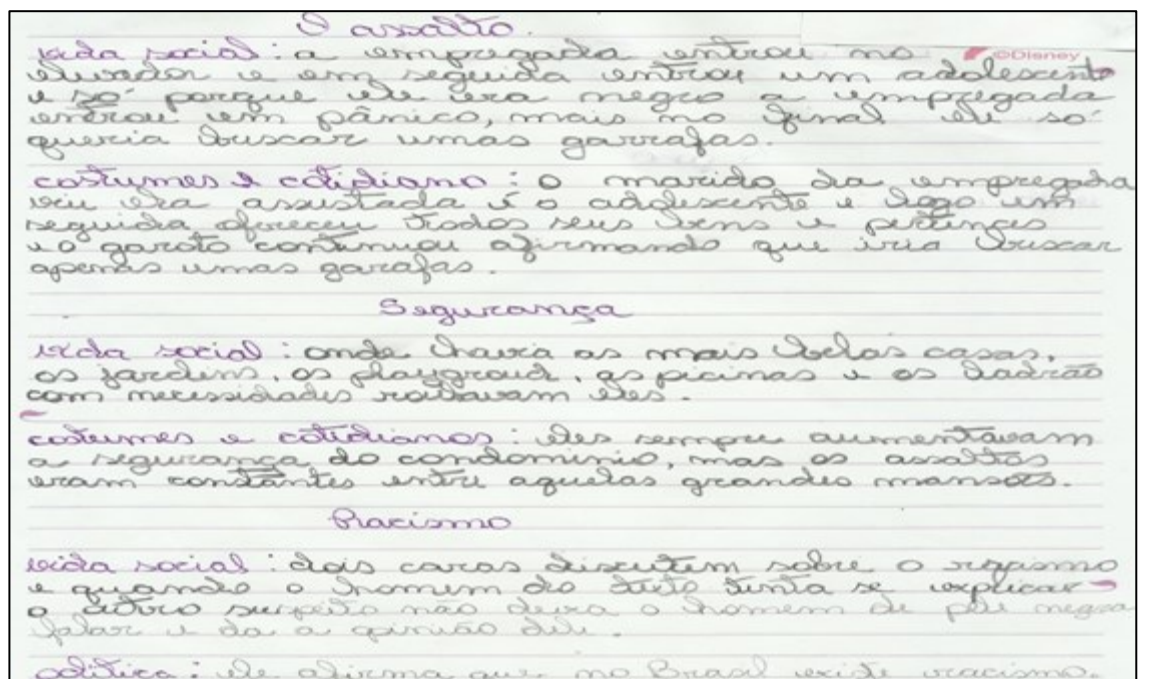 O assalto.
vida social : a empregada entrou no
©Disney
elevador e em seguida entrou um adolescente
e só porque ele era negro a empregada
entrou em pânico, mais no final ele só
queria buscar umas garrafas.
costumes e cotidiano : o marido da empregada
veu ela assustada é o adolescente e logo em
seguida ofereceu todos seus bens e pertences
e o garoto continuou afirmando que iria buscar
apenas umas garafas.
Segurança
vida social : onde havia as mais belas casas,
os jardins, os playgroud, as picinas e os ladrão
com necessidades roubavam eles.
costumes e cotidianos : eles sempre aumentavam
a segurança do condominio, mas os assaltos
eram constantes entre aquelas grandes mansões.
Racismo
vida social : dois caras discutem sobre o racismo
e quando o homem do texto tenta se explicar
o outro sujeito não deixa o homem de pele negra
falar e da a opinião dele.
politica : ele afirma que no Brasil existe racismo.